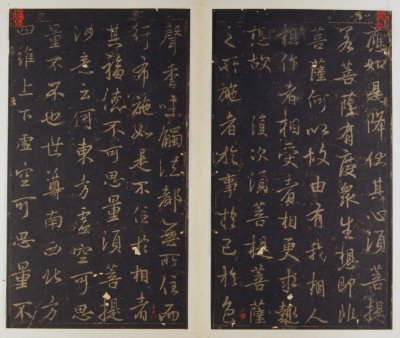 應如是降伏其心須菩提
若菩薩有度衆生想即非
菩薩何以故由有我相人
相作者相受者相更求趣
想故 復次須菩提菩薩
之所施者於事於己於色
聲香味觸法都無所住而
行布施如是不住於相者
其福德不可思量須菩提
汝意云何東方虛空可思
量不不也世尊南西北方
四維上下虛空可思量不